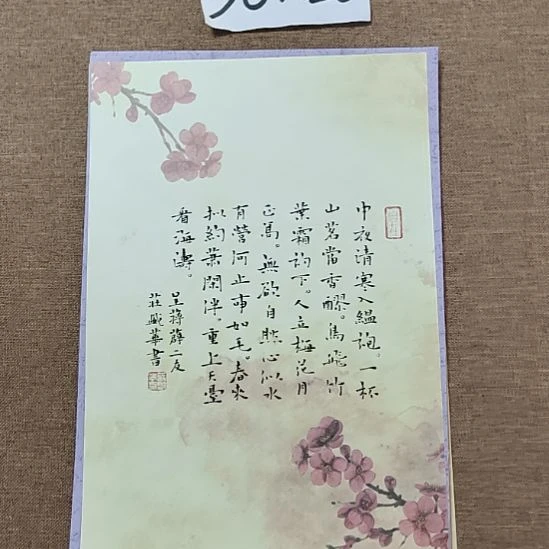 中夜清寒入縕袍。一杯
山茗當香醪。鳥飛竹
葉霜初下。人立梅花月
正高。無欲自然心似水
有營何止事如毛。春來
拟約蕭閑伴。重上天臺
看海濤。
呈蔣薛二友
莊 華書